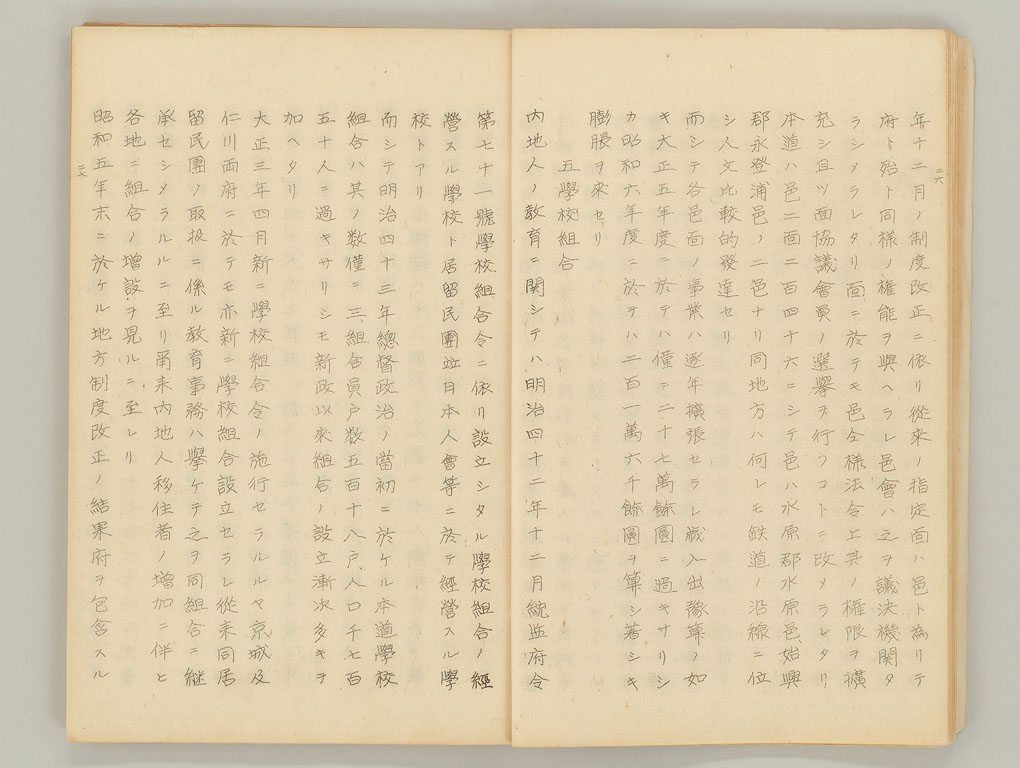 二六
年十二月ノ制度改正ニ依リ從來ノ指定面ハ邑ト為リテ
府ト殆ト同樣ノ權能ヲ與ヘラレ邑會ハ之ヲ議決機關タ
ラシメラレタリ面ニ於テモ邑仝樣法令上其ノ權限ヲ擴
充シ且ツ面協議會員ノ選擧ヲ行フコトニ改メラレタリ
本道ハ邑二面二百四十六ニシテ邑ハ水原郡水原邑、始興
郡永登浦邑ノ二邑ナリ同地方ハ何レモ鉄道ノ沿線ニ位
シ人文比較的發達セリ
而シテ各邑面ノ事業ハ逐年擴張セラレ歳入出豫算ノ如
キ大正五年度ニ於テハ僅ニ二十七萬餘圓ニ過キサリシ
カ昭和六年度ニ於テハ二百一萬六千餘圓ヲ算シ著シキ
膨脹ヲ來セリ
五學校組合
内地人ノ教育ニ関シテハ明治四十二年十二月統監府令
第七十一號學校組合令ニ依リ設立シタル學校組合ノ經
營スル學校ト居留民團竝日本人會等ニ於テ經營スル學
校トアリ
而シテ明治四十三年總督政治ノ當初ニ於ケル本道學校
組合ハ其ノ数僅ニ三、組合員戸数五百十八戸、人口千七百
五十人ニ過キサリシモ新政以來組合ノ設立漸次多キヲ
加ヘタリ
大正三年四月新ニ學校組合令ノ施行セラルルヤ京城及
仁川両府ニ於テモ亦新ニ學校組合設立セラレ從来同居
留民團ノ取扱ニ係ル教育事務ハ擧ケテ之ヲ同組合ニ継
承セシメラルルニ至リ爾来内地人移住者ノ増加ニ伴ヒ
各地ニ組合ノ増設ヲ見ルニ至レリ
昭和五年末ニ於ケル地方制度改正ノ結果府ヲ包含スル
二七